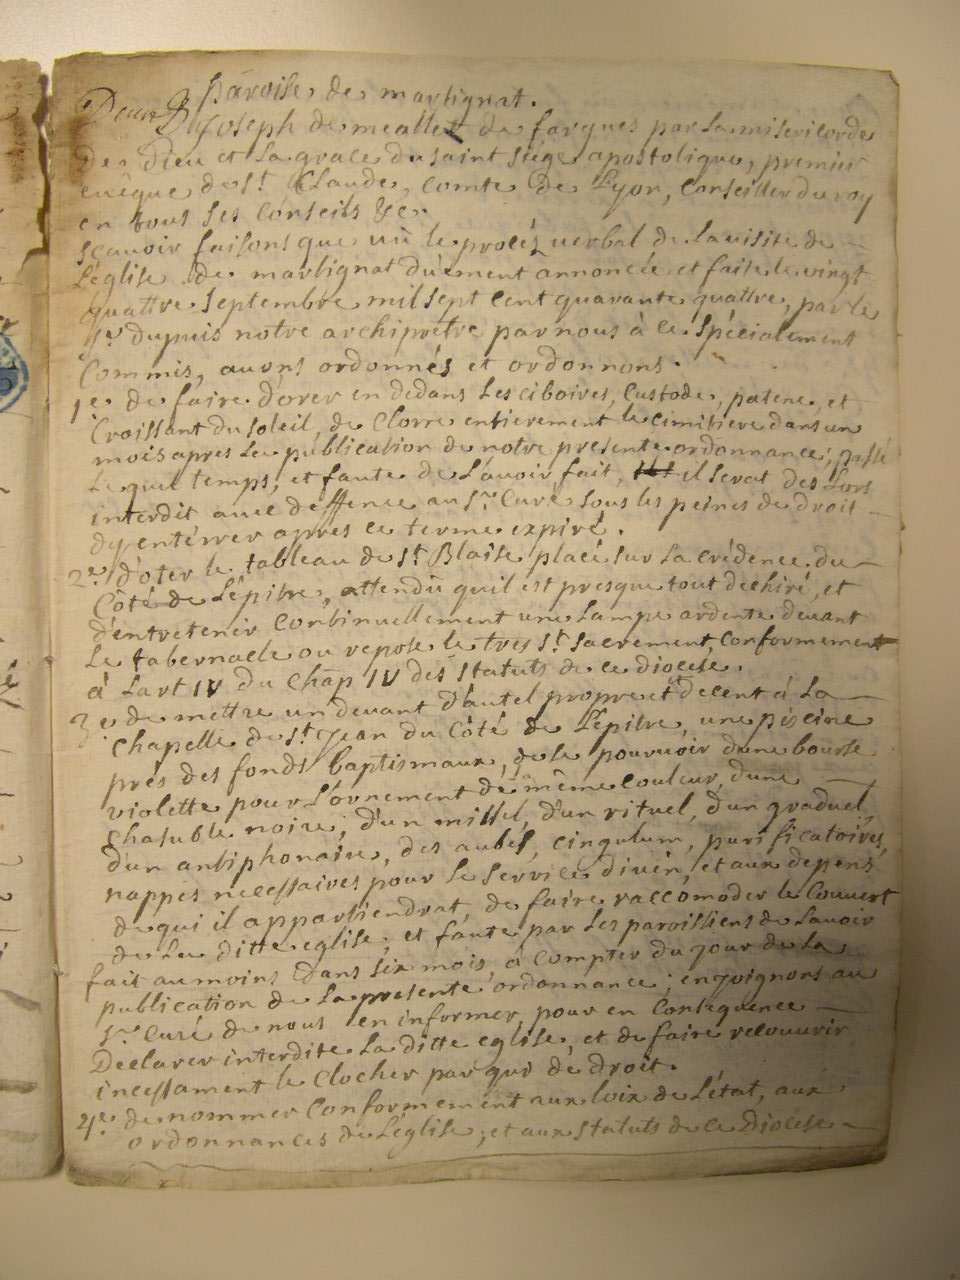 Paroisse de martignat.
Jean B. Joseph de meallet de fargues par La misericorde
De Dieu et La grace du saint siége apostolique, premier
evêque de St. Claude, comte De Lyon, Conseiller du roy
en tous ses Conseils &c.
Sçavoir faisons que vû le procés verbal de La visite de
L'église de martignat dûement annoncée et faite le vingt
quattre Septembre mil sept cent quarante quattre, par le
sr. dupuis notre archiprêtre par nous à ce Spécialement
Commis, avons ordonnés et ordonnons.
1e. de faire dorer en dedans Les ciboires, Custode, patene, et
Croissant du soleil, de Clorre entierement le cimitiere dans un
mois apres La publication de notre presente ordonnance, passé
Lequel temps, et faute de L'avoir fait, il serat des Lors
interdit avec deffence au Sr. Curé sous les peines de droit
dy entérrer apres ce terme expiré.
2e. d'oter le tableau de St. Blaise placé sur La crédence du
Côté de L'épitre, attendû quil est presque tout dechiré, et
d'entretenir Continuellement une Lampe ardente devant
Le tabernacle ou repose le tres St. Sacrement, Conformement
à Lart IV du Chap IV des statuts de ce diocese.
3e. de mettre un devant d'autel propre et decent à La
Chapelle de St. Jean du Côté de L'épitre, une piscine
prés des fonds baptismaux, de se pourvoir d'une bourse
violette pour L'ornement de même couleur, d'une
Chasuble noire, d'un missel, d'un rituel, d'un graduel,
d'un antiphonaire, des aubes, cingulum, purificatoires,
nappes necessaires pour Le service divin, et aux depens
de qui il appartiendrat, de faire raccomoder le Couvert
de La ditte eglise, et faute par Les paroissiens de L'avoir
fait au moins dans six mois, à compter du jour de La
publication de La presente ordonnance, enjoignons au
Sr. Curé de nous en informer, pour en Consequence
Declarer interdite La ditte eglise, et de faire recouvrir
incessament le Clocher par qui de droit.
4e. de nommer Conformément aux loix de L'état, aux
ordonnances de L'église, et aux statuts de ce Diocése